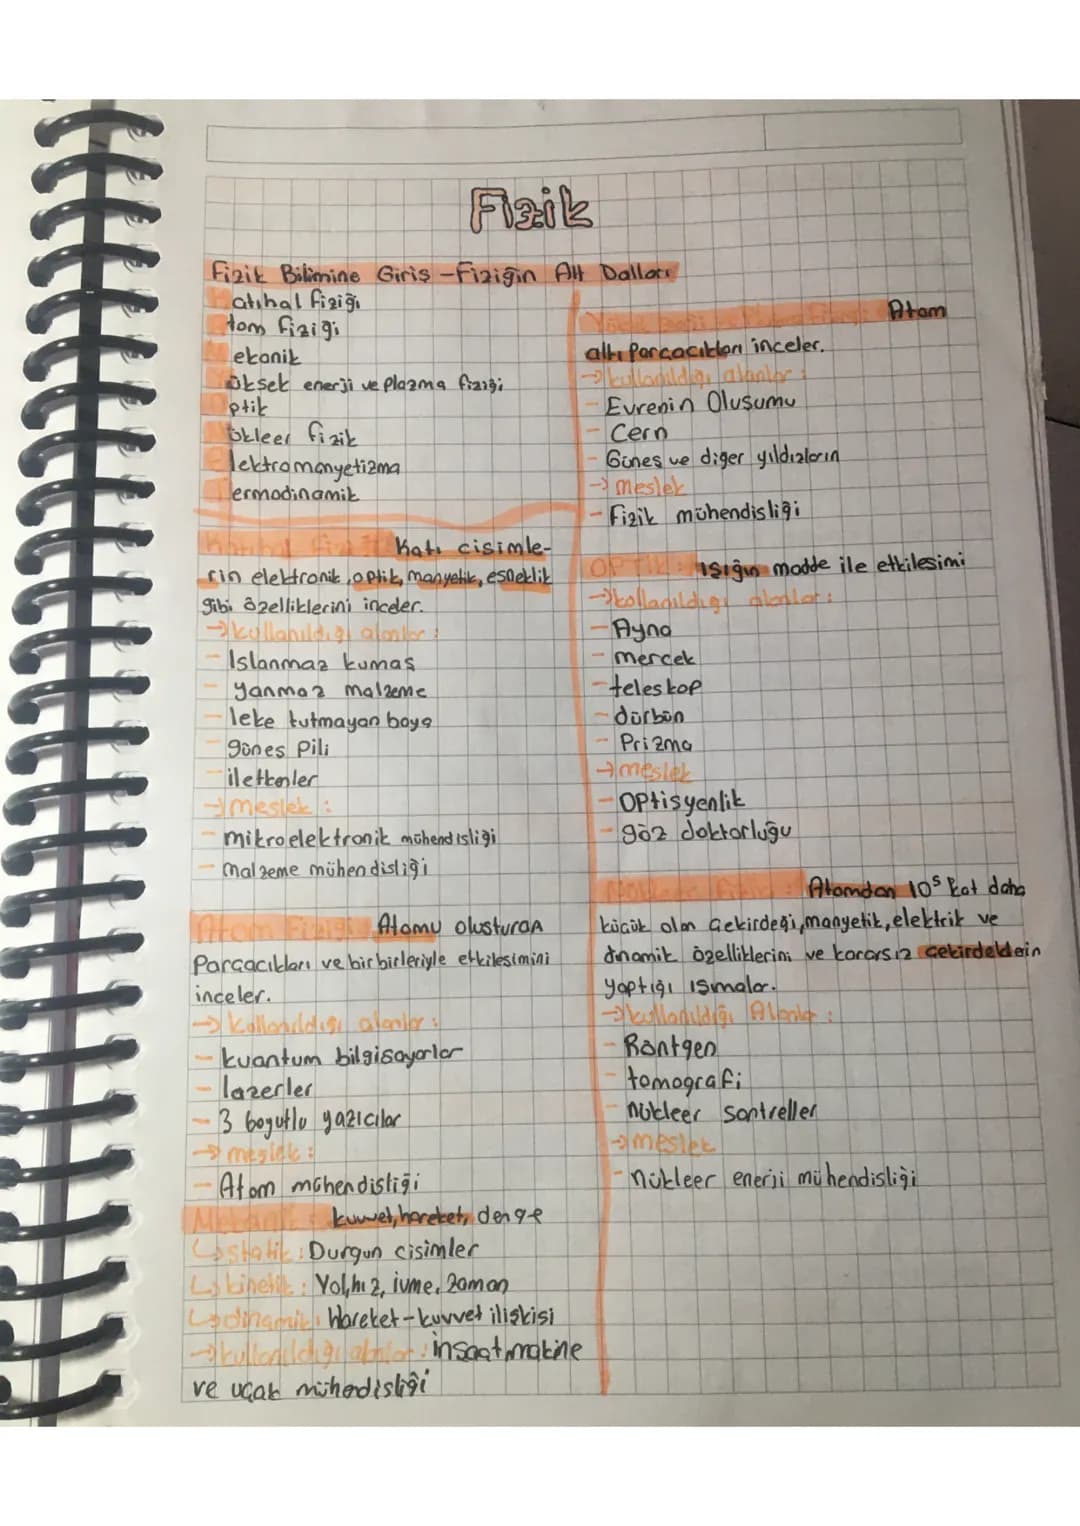 Fizik
Fizik Bilimine Giriş - Fiziğin Alt Dalları
Katıhal fiziği
Atom fiziği
Mekanik
Yüksek enerji ve Plazma fiziği
Optik
Nükleer fizik
Elektromanyetizma
Termodinamik
Katıhal Fiziği: Katı cisimle-
rin elektronik, optik, manyetik, esneklik
gibi özelliklerini inceler.
→ kullanıldığı alanlar:
- Islanmaz kumaş
- yanmaz malzeme
- leke tutmayan boya
- güneş Pili
- iletkenler
→ meslek:
- mikroelektronik mühendisliği
- malzeme mühendisliği
Atom Fiziği: Atomu oluşturan
Parçacıkları ve birbirleriyle etkileşimini
inceler.
→ kullanıldığı alanlar:
- kuantum bilgisayarlar
- lazerler
- 3 boyutlu yazıcılar
→ meslek:
- Atom mühendisliği
Mekanik: kuvvet, hareket, denge
↳ statik: Durgun cisimler
↳ kinetik: Yol, hız, ivme, zaman
↳ dinamik: Hareket-kuvvet ilişkisi
→ kullanıldığı alanlar: inşaat, makine
ve uçak mühedisliği
Atom
altı Parçacıkları inceler.
→ kullanıldığı alanlar:
- Evrenin Oluşumu
- Cern
- Güneş ve diğer yıldızların
→ meslek
- Fizik mühendisliği
OPTİK: ışığın madde ile etkileşimi
→ kullanıldığı alanlar:
- Ayna
- mercek
- teleskop
- dürbün
- Prizma
→ meslek
- OPtisyenlik
- göz doktorluğu
Nükleer Fizik: Atomdan 10⁵ kat daha
küçük olan çekirdeği, manyetik, elektrik ve
dinamik özelliklerini ve kararsız çekirdeklein
yaptığı ışımalar.
→ kullanıldığı Alanlar:
- Röntgen
- tomografi
- nükleer santreller
→ meslek
- nükleer enerji mühendisliği